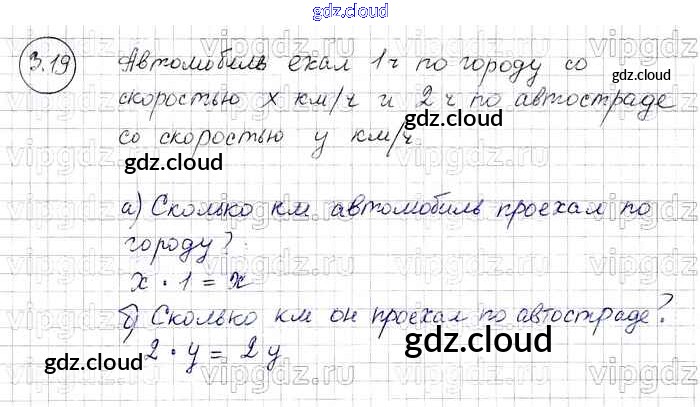 gdz.cloud
3.19 Автомобиль ехал 1 ч по городу со
gdz.cloud
скоростью x км/ч и 2 ч по автостраде
gdz.cloud
со скоростью y км/ч.
gdz.cloud
а) Сколько км автомобиль проехал по
городу?
x · 1 = x
gdz.cloud
б) Сколько км он проехал по автостраде?
2 · y = 2y
gdz.cloud
gdz.cloud